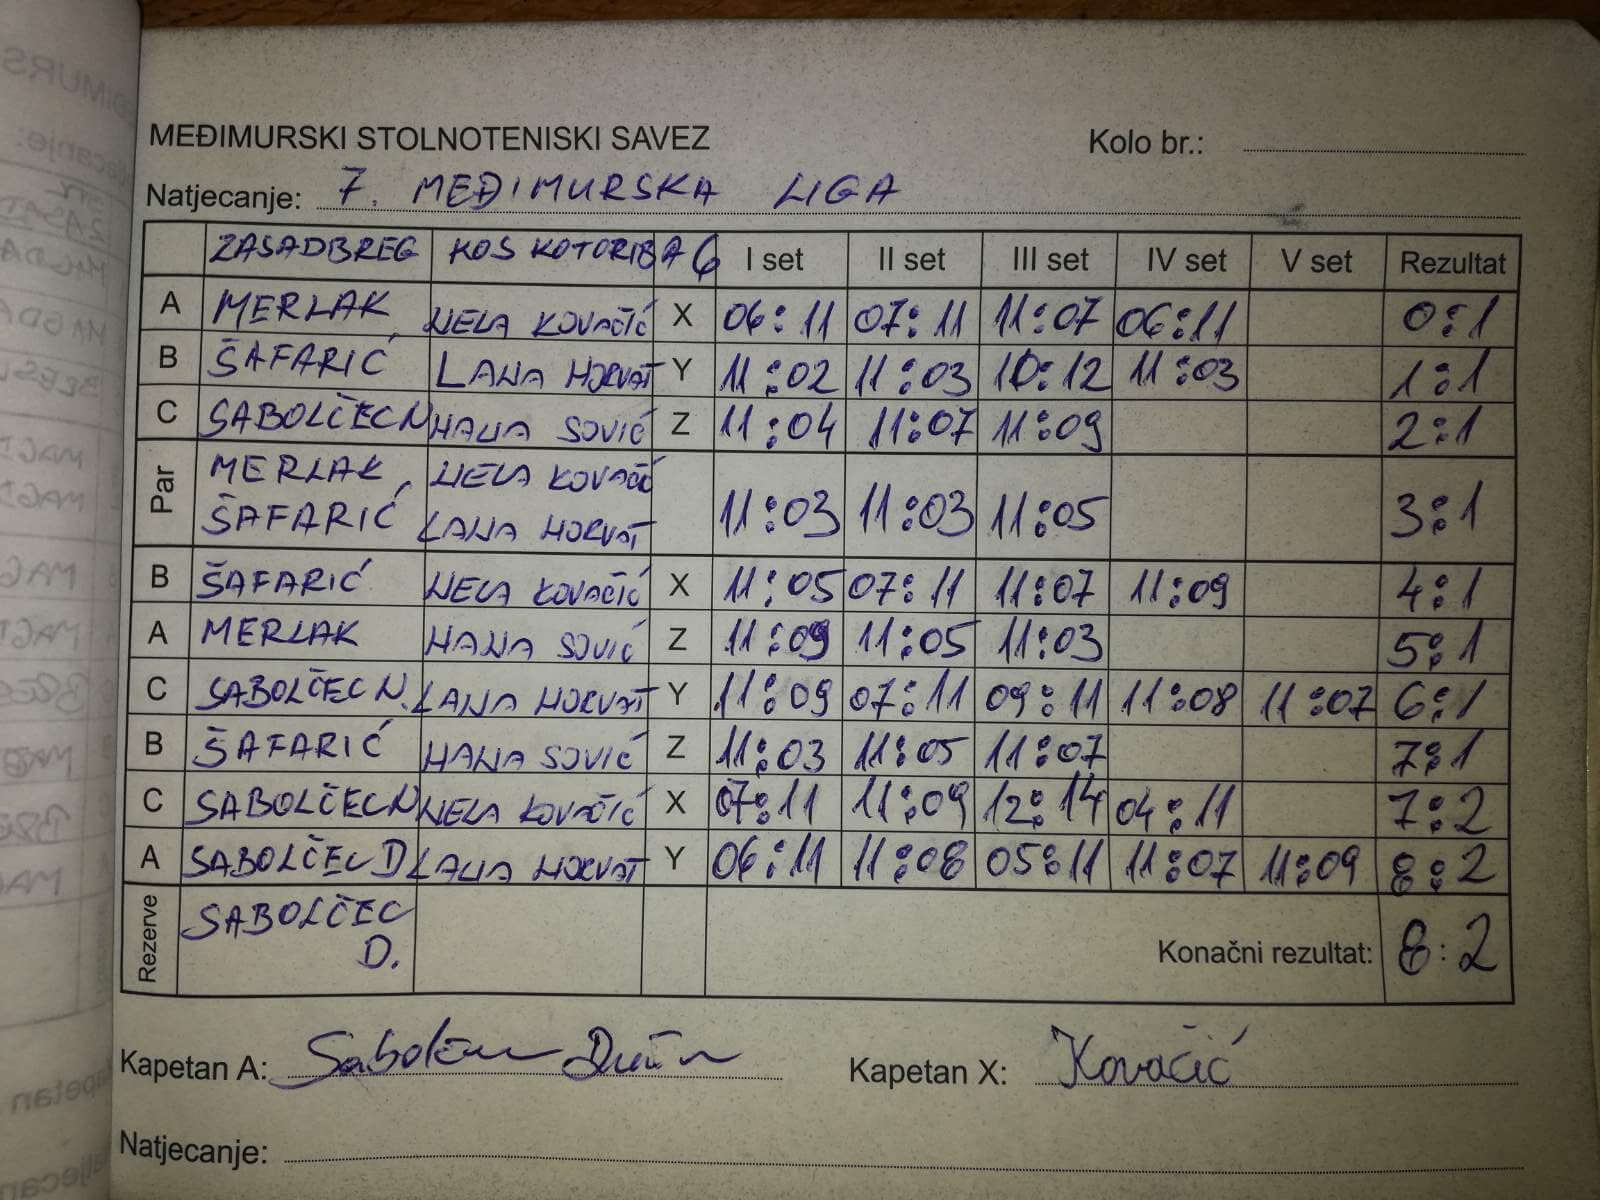 MEĐIMURSKI STOLNOTENISKI SAVEZ Kolo br.:
Natjecanje: 7. MEĐIMURSKA LIGA
ZASADBREG KOS KOTORIBA 6 I set II set III set IV set V set Rezultat
A MERLAK NELA KOVAČIĆ X 06:11 07:11 11:07 06:11 0:1
B ŠAFARIĆ LANA HORVAT Y 11:02 11:03 10:12 11:03 1:1
C SABOLČEC N HANA SOVIĆ Z 11:04 11:07 11:09 2:1
Par MERLAK NELA KOVAČIĆ
ŠAFARIĆ LANA HORVAT 11:03 11:03 11:05 3:1
B ŠAFARIĆ NELA KOVAČIĆ X 11:05 07:11 11:07 11:09 4:1
A MERLAK HANA SOVIĆ Z 11:09 11:05 11:03 5:1
C SABOLČEC N. LANA HORVAT Y 11:09 07:11 09:11 11:08 11:07 6:1
B ŠAFARIĆ HANA SOVIĆ Z 11:03 11:05 11:07 7:1
C SABOLČEC N NELA KOVAČIĆ X 07:11 11:09 12:14 04:11 7:2
A SABOLČEC D LANA HORVAT Y 06:11 11:08 05:11 11:07 11:09 8:2
Rezerve SABOLČEC
D. Konačni rezultat: 8:2
Kapetan A: Kapetan X: Kovačić
Natjecanje: